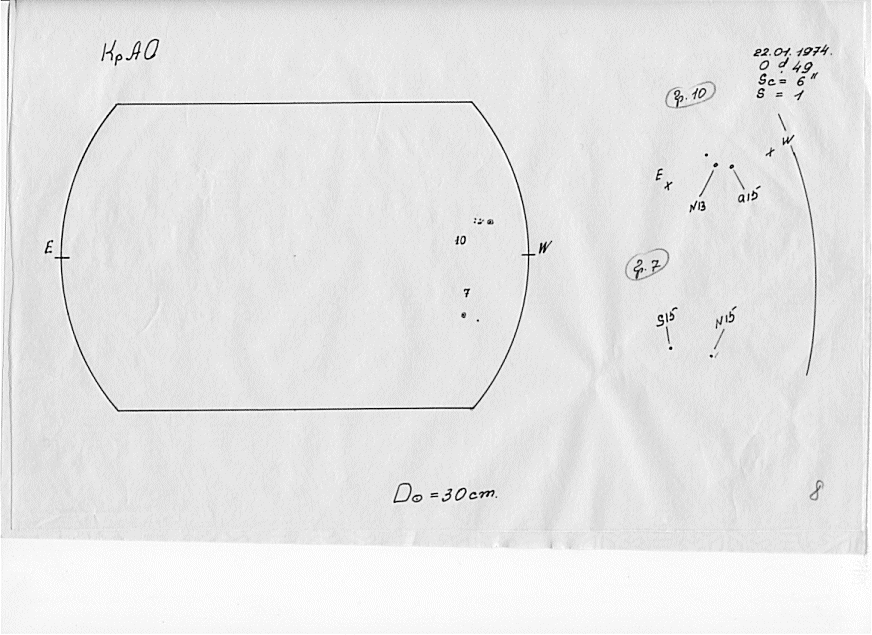 КрАО
22.01.1974.
0ᵈ.49
Sc = 6"
S = 1
гр. 10
W
E
N13
α15
E
W
10
7
гр. 7
S15
N15
D⊙ = 30 cm.
8